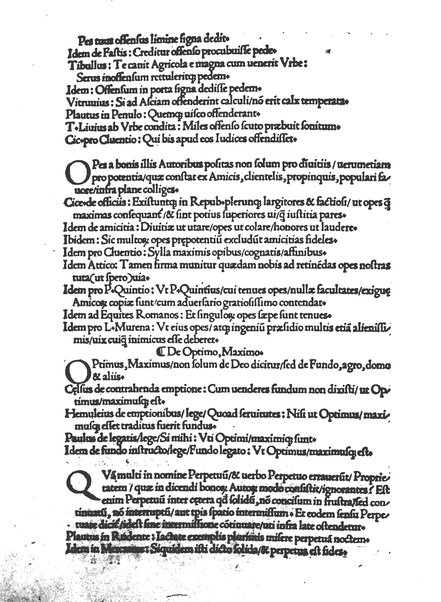 Pes tuus offensus limine signa dedit.
Idem de Fastis: Creditur offenso procubuisse pede.
Tibullus: Te canit Agricola e magna cum uenerit Vrbe:
Serus inoffensum rettuleritq; pedem.
Idem: Offensum in porta signa dedisse pedem.
Vitruuius: Si ad Asciam offenderint calculi/nõ erit calx temperata.
Plautus in Penulo: Quemq; uisco offenderant.
T. Liuius ab Vrbe condita: Miles offenso scuto præbuit sonitum.
Cic. pro Cluentio: Qui bis apud eos Iudices offendisset.
OPes a bonis illis Autoribus positas non solum pro diuitiis / uerumetiam
pro potentia/quæ constat ex Amicis, clientelis, propinquis, populari fa-
uore/infra plane colliges.
Cice. de officiis: Existunt q; in Repub. plerunq; largitores & factiosi/ ut opes q̃
maximas consequant̃/& sint potius superiores ui/q̃ iustitia pares.
Idem de amicitia: Diuitiæ ut utare/opes ut colare/honores ut laudere.
Ibidem: Sic multoq; opes prepotentiũ excludũt amicitias fideles.
Idem pro Cluentio: Sylla maximis opibus/cognatis/affinibus.
Idem Attico: Tamen firma munitur quædam nobis ad retinẽdas opes nostras
tuta(ut spero)uia.
Idem pro P. Quintio: Vt P. Quintius/cui tenues opes/nullæ facultates/exiguę
Amicoq; copiæ sunt/cum aduersario gratiosissimo contendat.
Idem ad Equites Romanos: Et singuloq; opes sæpe sunt tenues.
Idem pro L. Murena: Vt eius opes/atq; ingeniũ præsidio multis etiã alienissi-
mis/uix cuiq̃ inimicus esse deberet.
¶ De Optimo, Maximo.
OPtimus, Maximus/non solum de Deo dicitur/sed de Fundo, agro, domo
& aliis.
Celsus de contrahenda emptione: Cum uenderes fundum non dixisti/ ut Op-
timus/maximusq; est.
Hemuleius de emptionibus/lege/Quoad seruitutes: Nisi ut Optimus/maxi-
musq; esset traditus fuerit fundus.
Paulus de legatis/lege/Si mihi: Vti Optimi/maximiq; sunt.
Idem de fundo instructo/lege/Fundo legato: Vt Optimus/maximusq; est.
QVã multi in nomine Perpetuũ/& uerbo Perpetuo errauerũt/ Proprie-
tatem / quæ in dicendi bonoq; Autoq; modo consistit/ignorantes? Est
enim Perpetuũ inter opera qd̃ solidũ, nõ concisum in frusta/sed con-
tinuatũ, nõ interruptũ/ aut tpis spatio intermissum. Et eodem sensu Perpe-
tuo dicit̃/idest sine intermissione cõtinuate/uti infra late ostendetur.
Plautus in Rudente: Iactatæ exemplis plurimis misere perpetuã noctem.
Idem in Mercatore: Siquidem isti dicto solida/& perpetua est fides.